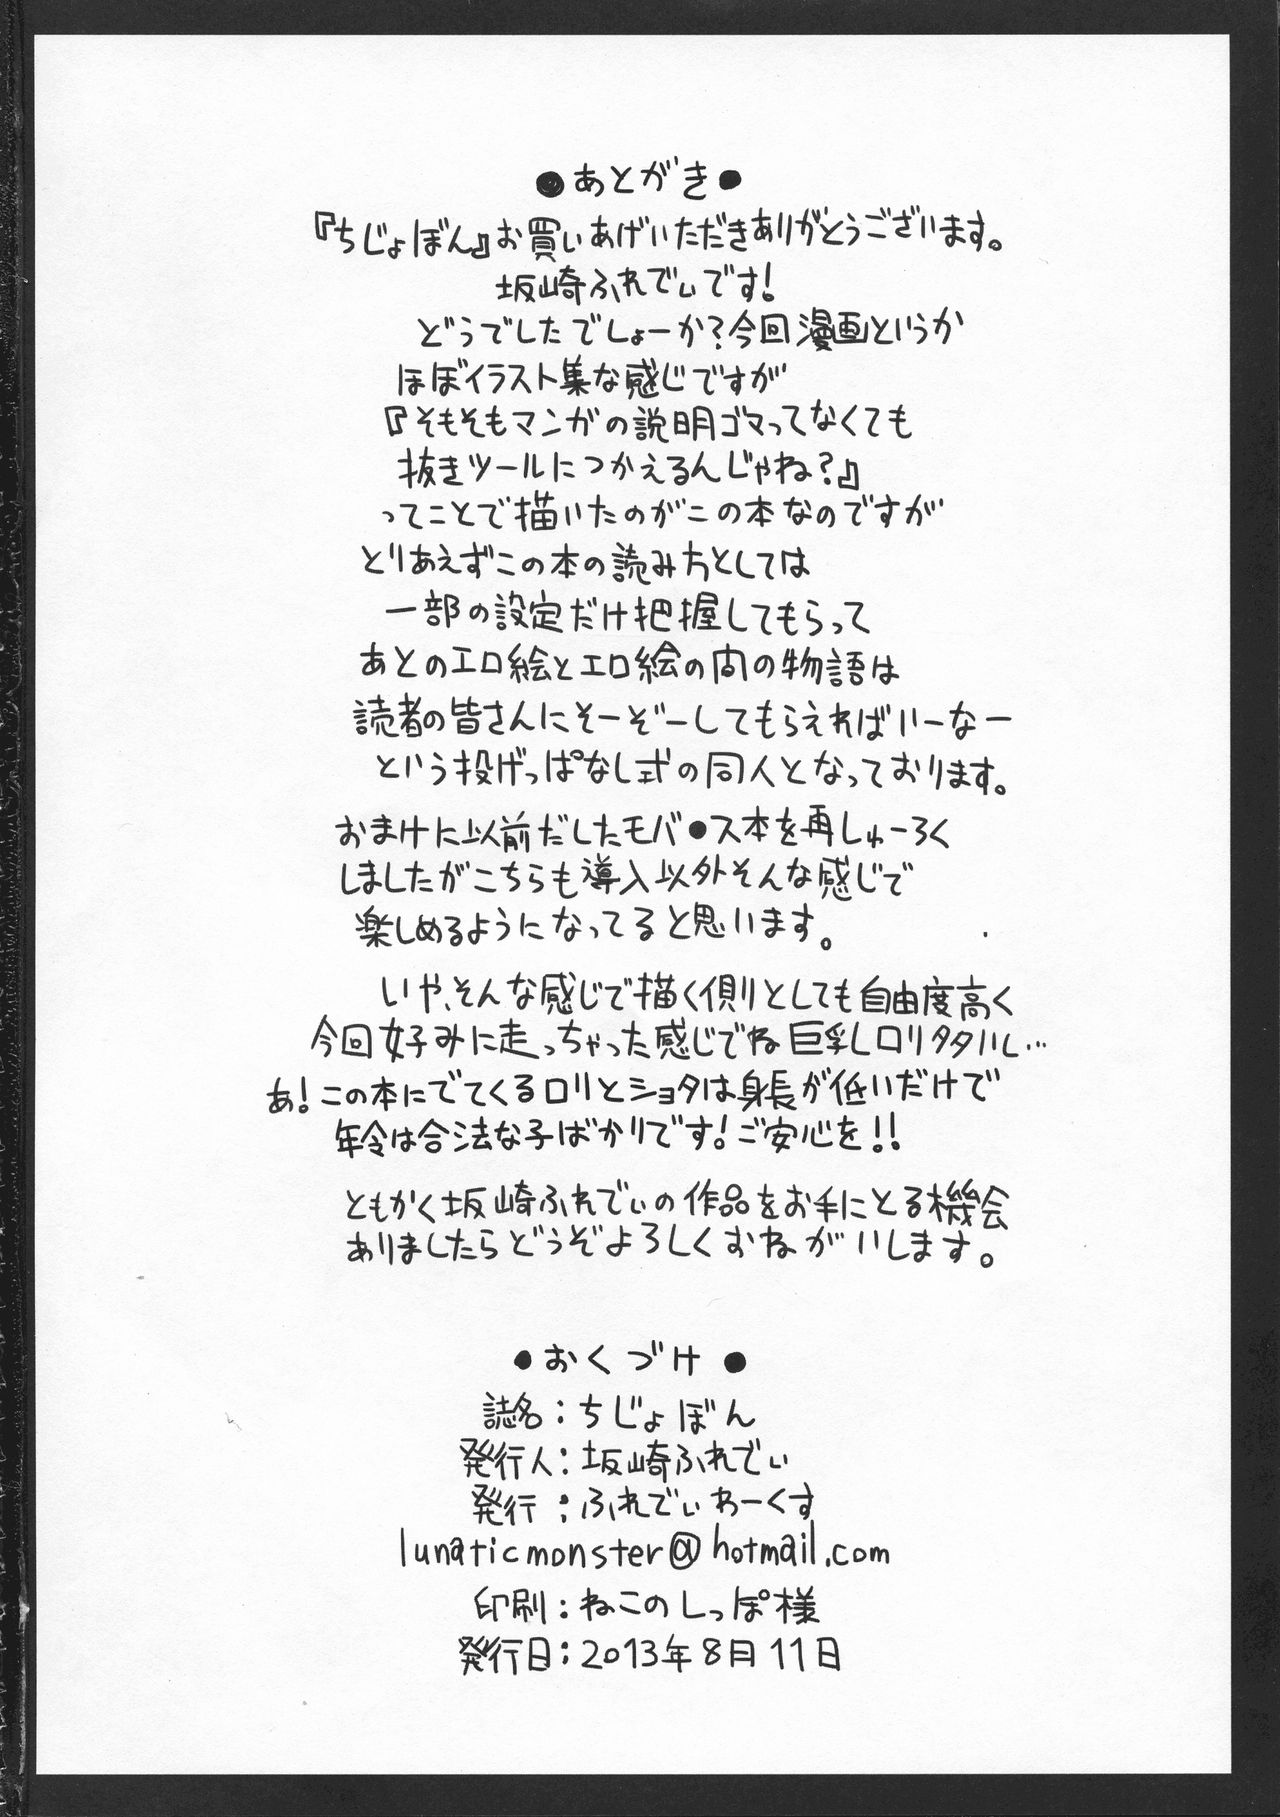 ●あとがき●
『ちじょぼん』お買いあげいただきありがとうございます。
坂崎ふれでぃです!
どうでしたでしょーか?今回漫画というか
ほぼイラスト集な感じですが
『そもそもマンガの説明ゴマってなくても
抜きツールにつかえるんじゃね?』
ってことで描いたのがこの本なのですが
とりあえずこの本の読み方としては
一部の設定だけ把握してもらって
あとのエロ絵とエロ絵の間の物語は
読者の皆さんにそーぞーしてもらえればいーなー
という投げっぱなし式の同人となっております。
おまけに以前だしたモバ●ス本を再しゅーろく
しましたがこちらも導入以外そんな感じで
楽しめるようになってると思います。
いや、そんな感じで描く側としても自由度高く
今回好みに走っちゃった感じでね巨乳ロリ多いし…
あ!この本にでてくるロリとショタは身長が低いだけで
年令は合法な子ばかりです!ご安心を!!
ともかく坂崎ふれでぃの作品をお手にとる機会
ありましたらどうぞよろしくおねがいします。
●おくづけ●
誌名:ちじょぼん
発行人:坂崎ふれでぃ
発行:ふれでぃわーくす
lunaticmonster@hotmail.com
印刷:ねこのしっぽ様
発行日:2013年8月11日